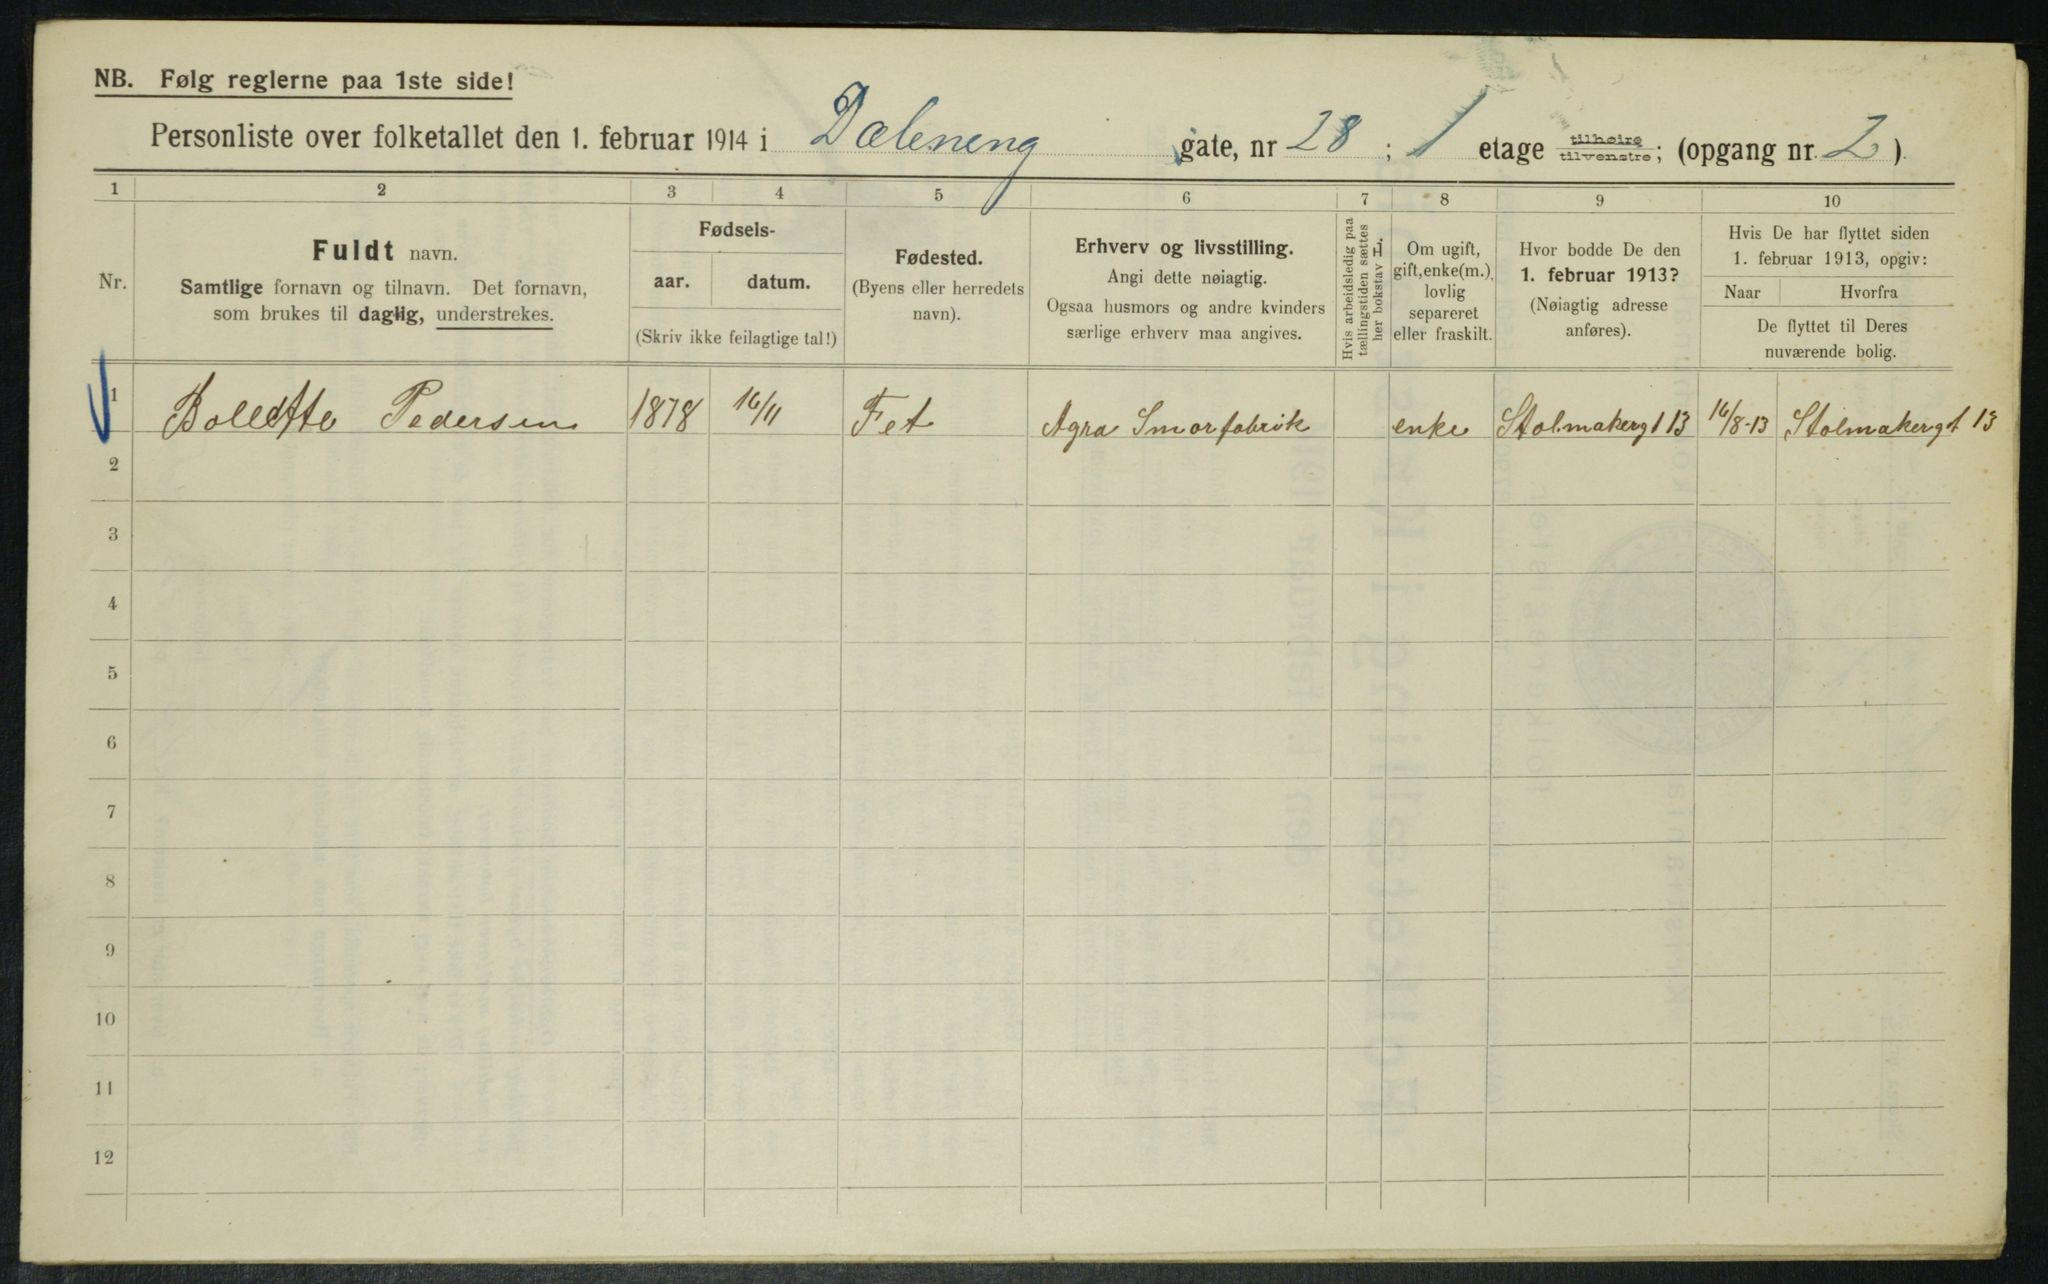 NB. Følg reglerne paa 1ste side!
Personliste over folketallet den 1. februar 1914 i Dæleneng gate, nr 28 ; 1 etage tilhøire tilvenstre; (opgang nr. 2 ).
1 2 3 4 5 6 7 8 9 10
Nr.
Fuldt navn.
Samtlige fornavn og tilnavn. Det fornavn,
som brukes til daglig, understrekes.
Fødsels-
aar. datum.
(Skriv ikke feilagtige tal!)
Fødested.
(Byens eller herredets
navn).
Erhverv og livsstilling.
Angi dette nøiagtig.
Ogsaa husmors og andre kvinders
særlige erhverv maa angives.
Hvis arbeidsledig paa
tællingstiden sættes
her bokstav L.
Om ugift,
gift, enke(m.),
lovlig
separeret
eller fraskilt.
Hvor bodde De den
1. februar 1913?
(Nøiagtig adresse
anføres).
Hvis De har flyttet siden
1. februar 1913, opgiv:
Naar Hvorfra
De flyttet til Deres
nuværende bolig.
1 Pedersen 1878 16/11 Fet Agra Smørfabrik enke Stolmakergt 13 16/8-13 Stolmakergt 13
2
3
4
5
6
7
8
9
10
11
12